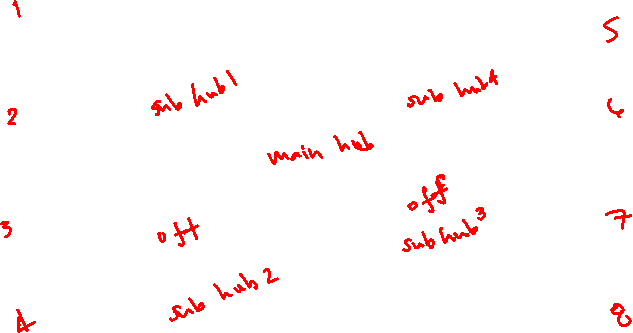 1
5
sub hub 1
sub hub 4
2
6
main hub
off
3
off
7
sub hub 3
sub hub 2
4
8